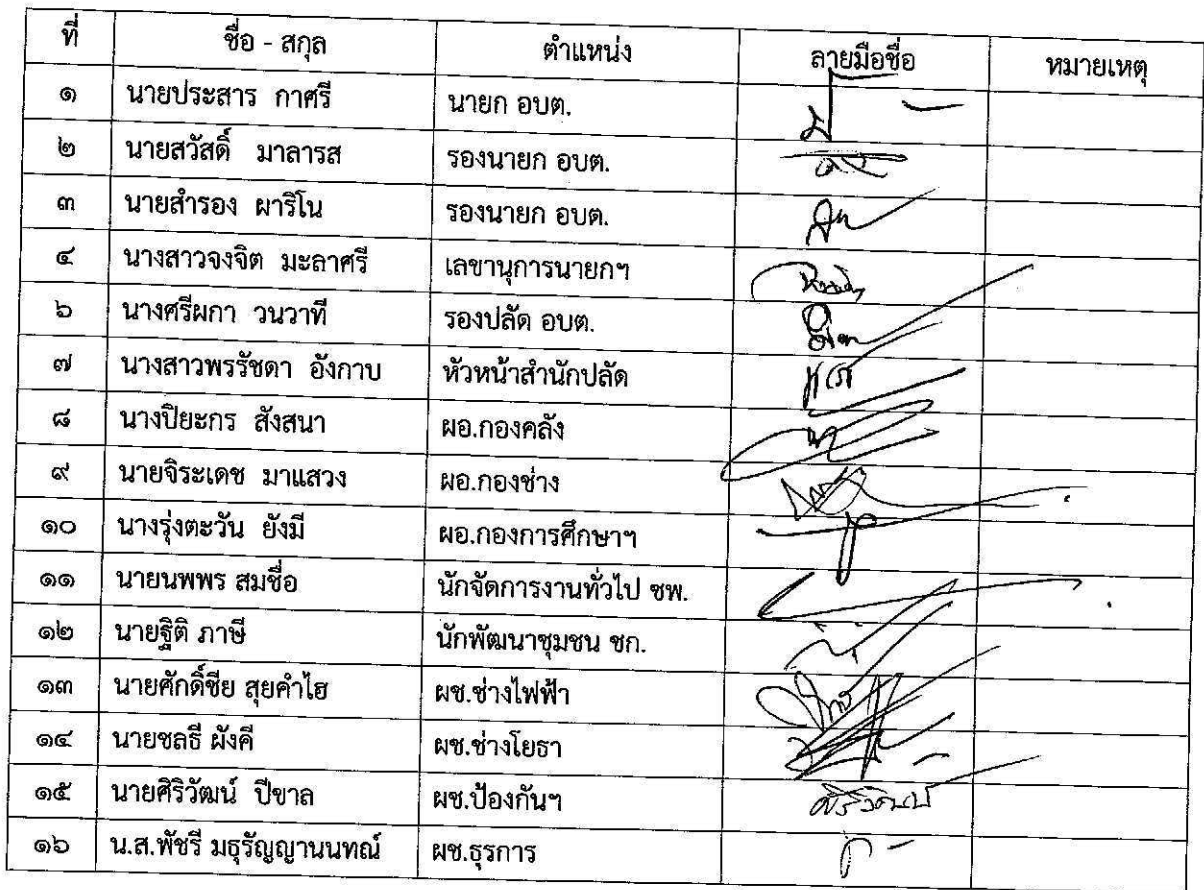 ที่ ชื่อ - สกุล ตำแหน่ง ลายมือชื่อ หมายเหตุ
๑ นายประสาร กาศรี นายก อบต.
๒ นายสวัสดิ์ มาลารส รองนายก อบต.
๓ นายสำรอง ผาริโน รองนายก อบต.
๔ นางสาวจงจิต มะลาศรี เลขานุการนายกฯ
๖ นางศรีผกา วนวาที รองปลัด อบต.
๗ นางสาวพรรัชดา อังกาบ หัวหน้าสำนักปลัด
๘ นางปิยะกร สังสนา ผอ.กองคลัง
๙ นายจิระเดช มาแสวง ผอ.กองช่าง
๑๐ นางรุ่งตะวัน ยังมี ผอ.กองการศึกษาฯ
๑๑ นายนพพร สมชื่อ นักจัดการงานทั่วไป ชพ.
๑๒ นายฐิติ ภาษี นักพัฒนาชุมชน ชก.
๑๓ นายศักดิ์ชีย สุยคำไฮ ผช.ช่างไฟฟ้า
๑๔ นายชลธี ผังคี ผช.ช่างโยธา
๑๕ นายศิริวัฒน์ ปีขาล ผช.ป้องกันฯ ศิริวัฒน์
๑๖ น.ส.พัชรี มธุรัญญานนทณ์ ผช.ธุรการ